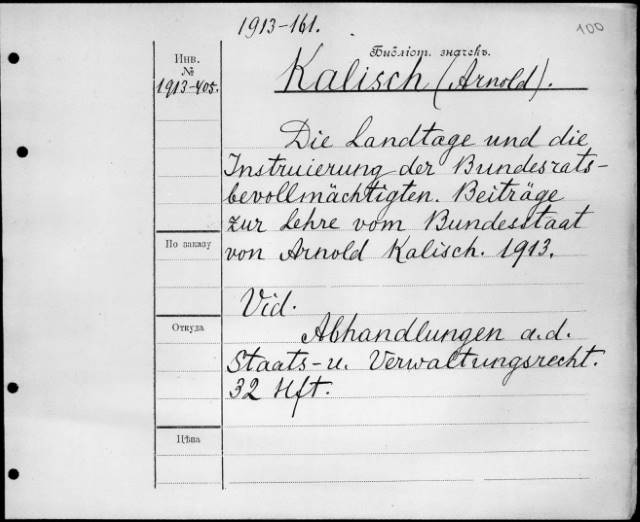 1913-161.
100
Библіот. значекъ.
Инв.
№
1913-405.
Kalisch (Arnold).
Die Landtage und die
Instruierung der Bundesrats-
bevollmächtigten. Beiträge
zur Lehre vom Bundesstaat
von Arnold Kalisch. 1913.
По заказу
Vid.
Откуда
Abhandlungen a.d.
Staats- u. Verwaltungsrecht.
32 Hft.
Цѣна